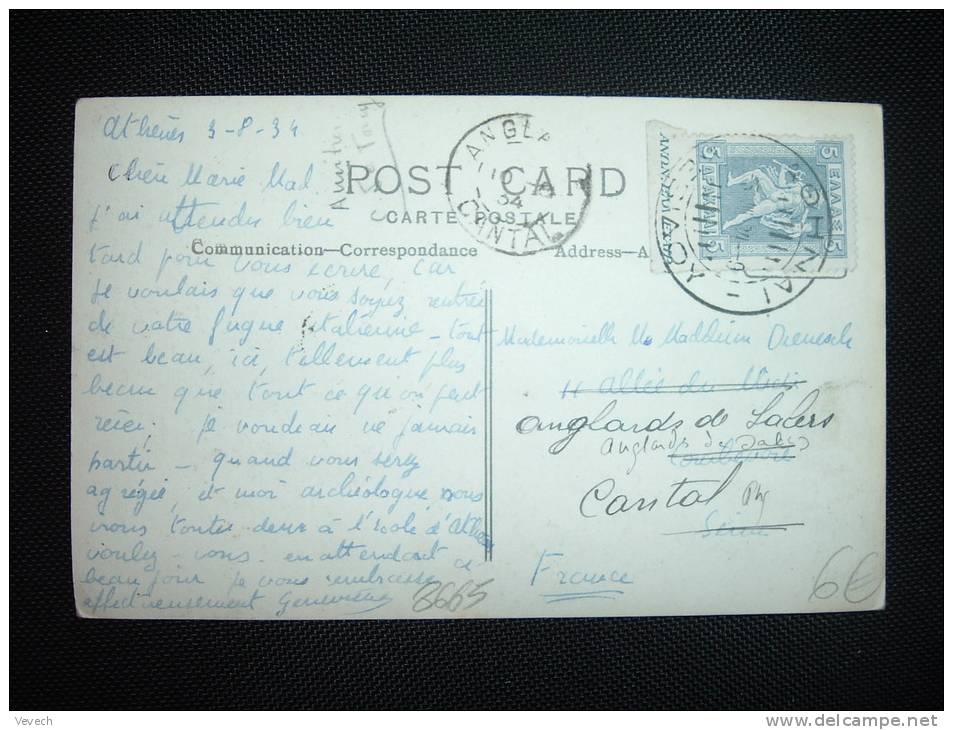 Athènes 3-8-34
Chère Marie Mad.
J'ai attendu bien
tard pour vous écrire, car
je voulais que vous soyez rentrée
de votre fugue italienne - tout
est beau, ici, tellement plus
beau que tout ce qu'on peut
rêver; je voudrais ne jamais
partir - quand vous serez
agrégée, et moi archéologue, nous
irons toutes deux à l'école d'Athènes
voulez-vous. en attendant ce
beau jour je vous embrasse
affectueusement Geneviève
POST CARD
CARTE POSTALE
Communication—Correspondance
Address—A
ANGLA
10
34
CANTAL
ΕΛΛΑΣ
5 5
5 ΔΡΑΧΜΑΙ 5
ΑΘΗΝΑΙ
Mademoiselle M. Madeleine
11 allée du
anglards de Salers
Anglards de Salers
Cantal
Seine
France
8665
6€
Vevech
www.delcampe.net